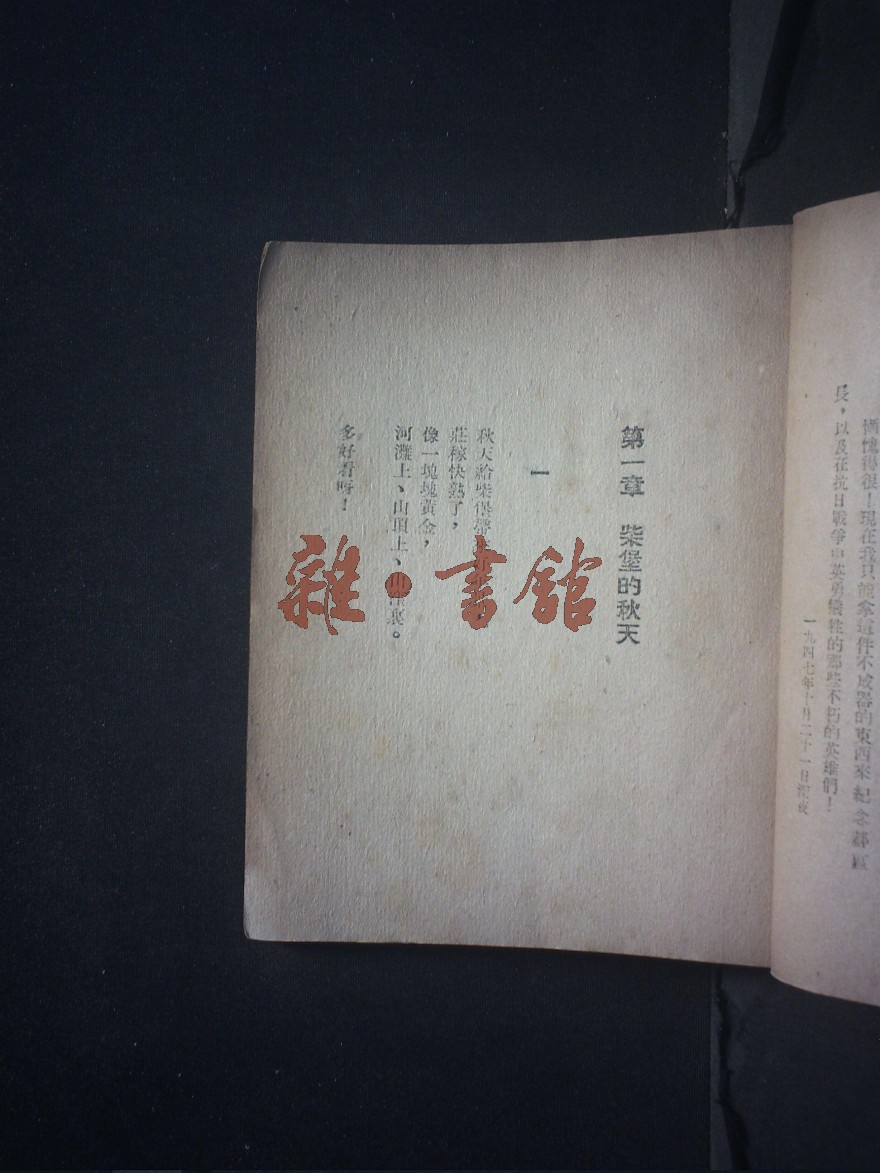 慚愧得很！現在我只能拿這件不成器的東西來紀念郝區
長，以及在抗日戰爭中英勇犧牲的那些不朽的英雄們！
一九四七年十月二十一日深夜
第一章 柴堡的秋天
一
秋天給柴堡帶
莊稼快熟了，
像一塊塊黃金，
河灘上、山頂上、山窪裏。
多好看呀！
雜·書館